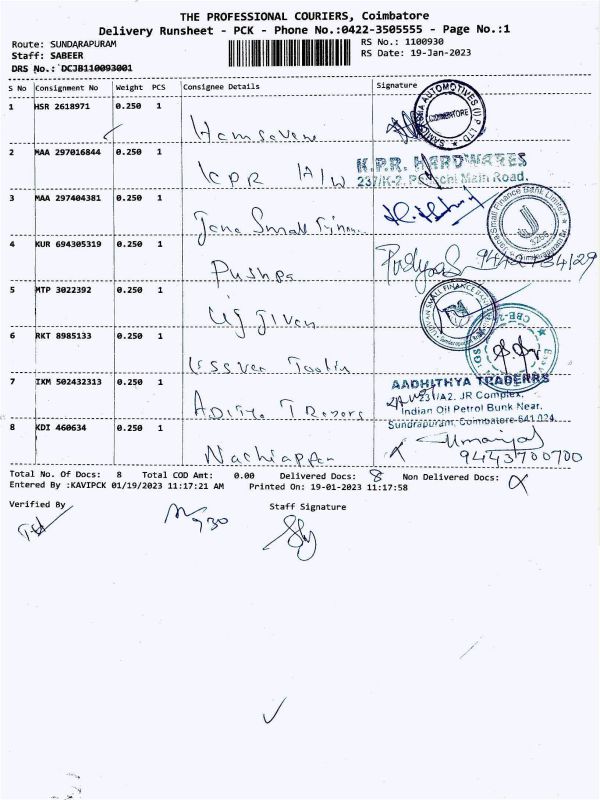 THE PROFESSIONAL COURIERS, Coimbatore
Delivery Runsheet - PCK - Phone No.:0422-3505555 - Page No.:1
Route: SUNDARAPURAM RS No.: 1100930
Staff: SABEER RS Date: 19-Jan-2023
DRS No.: DCJB110093001
S No Consignment No Weight PCS Consignee Details Signature
1 HSR 2618971 0.250 1
COIMBATORE
2 MAA 297016844 0.250 1 KPR H/W K.P.R. HARDWARES
237/K-2, Main Road.
3 MAA 297404381 0.250 1 Jana Small
Small Finance Bank Limited
4 KUR 694305319 0.250 1 Pushpa
5 MTP 3022392 0.250 1
SMALL FINANCE BANK
6 RKT 8985133 0.250 1
7 IKM 502432313 0.250 1 AADHITHYA TRADERRS
231/A2, JR Complex,
Indian Oil Petrol Bunk Near,
Sundrapuram, Coimbatore-641 024.
8 KDI 460634 0.250 1 Nachiappan
9443700700
Total No. Of Docs: 8 Total COD Amt: 0.00 Delivered Docs: 8 Non Delivered Docs:
Entered By :KAVIPCK 01/19/2023 11:17:21 AM Printed On: 19-01-2023 11:17:58
Verified By Staff Signature